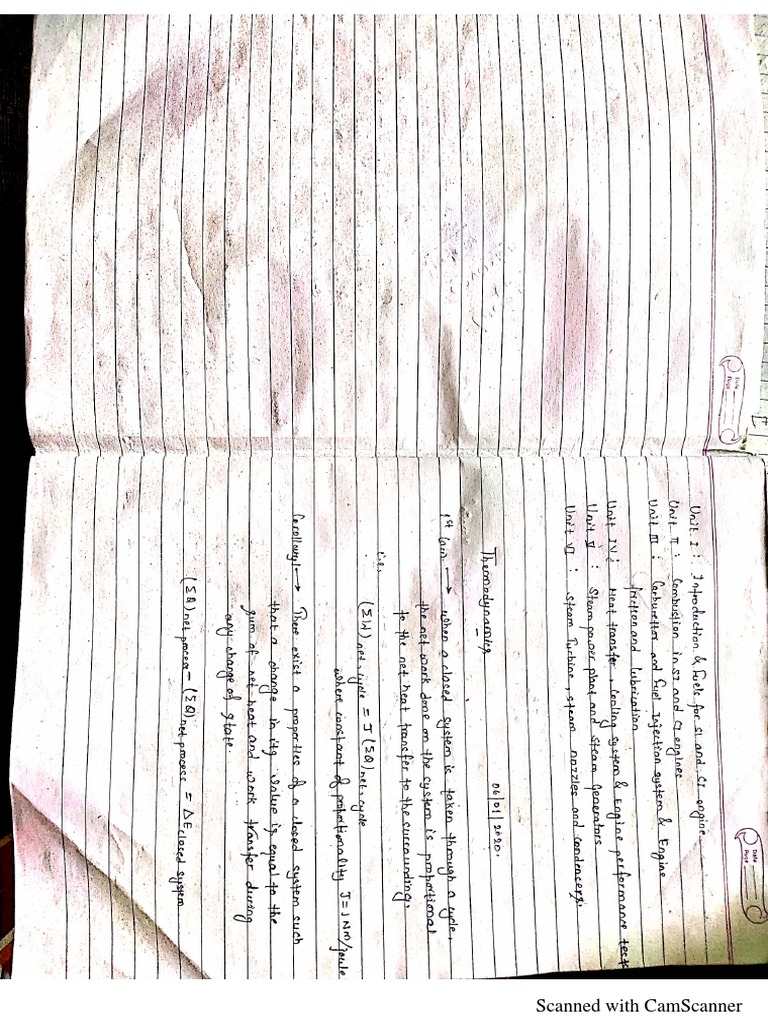 Date
Page
Date
Page
Unit I : Introduction & fuels for SI and CI engine.
Unit II : Combustion in SI and CI engines
Unit III : Carburettor and fuel Injection system & Engine
friction and lubrication
Unit IV : Heat transfer, Cooling system & Engine performance test
Unit V : Steam power plant and steam Generators
Unit VI : Steam Turbine, steam nozzles and condensers.
06/01/2020.
Thermodynamics
1st Law → When a closed system is taken through a cycle,
the net work done on the system is proportional
to the net heat transfer to the surrounding.
i.e.
(ΣW) net, cycle = J (ΣQ) net, cycle
where constant of proportionality J = 1 Nm/joule
Corollary1 → There exist a properties of a closed system such
that a change in its value is equal to the
sum of net heat and work transfer during
any change of state.
(ΣQ) net process - (ΣQ) net process = ΔE closed system
Scanned with CamScanner